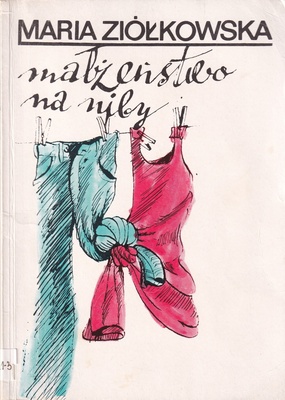 MARIA ZIÓŁKOWSKA
małżeństwo
na niby